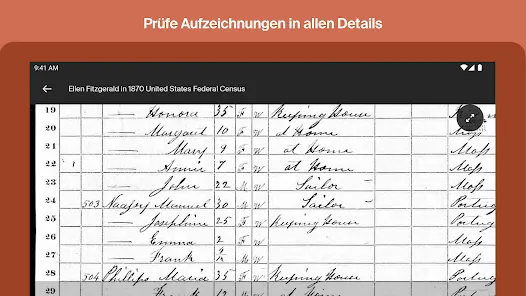 Prüfe Aufzeichnungen in allen Details
9:41 AM
Ellen Fitzgerald in 1870 United States Federal Census
19 — Honora 35 F W Keeping House
20 — Margaret 10 F W at Home Mass
21 — Mary 9 F W at Home Mass
22 — Annie 7 F W at Home Mass
23 — John 22 M W Sailor Mass
24 503 Manuel 30 M W Sailor Portug
25 — Josephine 25 F W Keeping House Portug
26 — Emma 2 F W Mass
27 — Frank M W Mass
28 504 Phillips Maria 35 F W Keeping House Portug
29 Frank 12 M W at Home